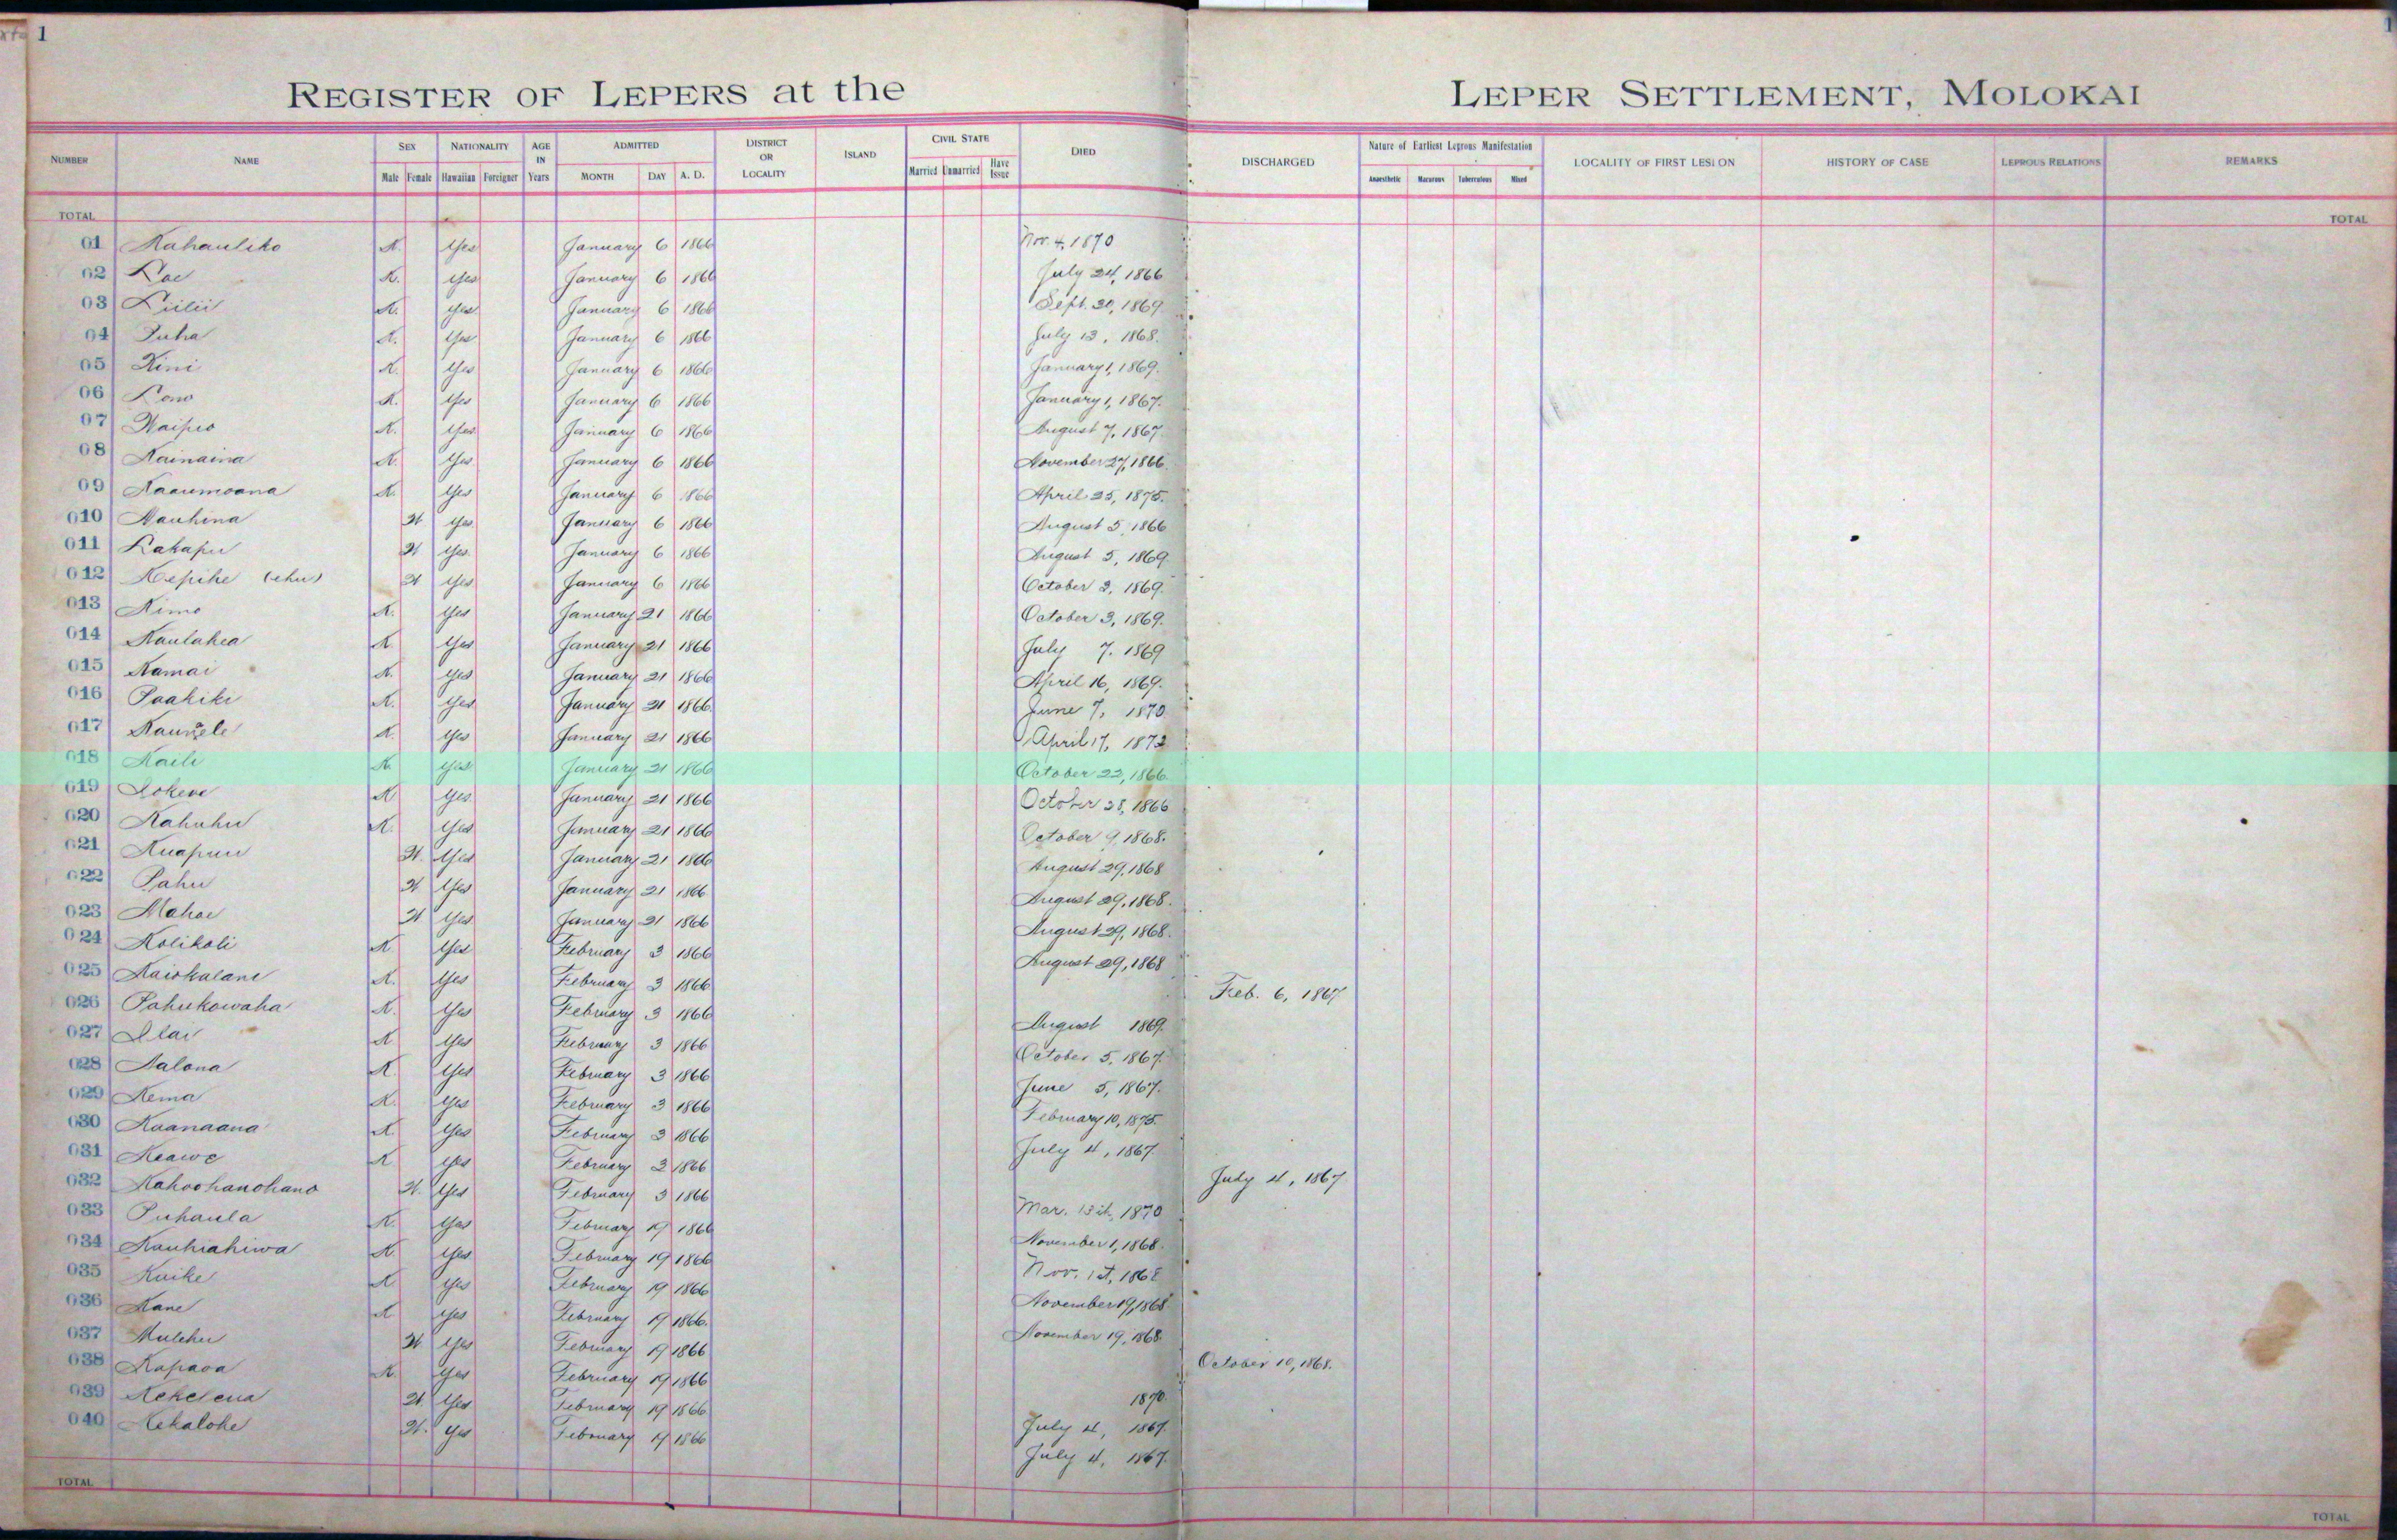 1
1
REGISTER OF LEPERS at the LEPER SETTLEMENT, MOLOKAI
NUMBER NAME SEX NATIONALITY AGE IN Years ADMITTED DISTRICT OR LOCALITY ISLAND CIVIL STATE DIED DISCHARGED Nature of Earliest Leprous Manifestation LOCALITY OF FIRST LESION HISTORY OF CASE LEPROUS RELATIONS REMARKS
Male Female Hawaiian Foreigner MONTH DAY A. D. Married Unmarried Have Issue Anaesthetic Macurous Tuberculous Mixed
TOTAL TOTAL
01 Kahauliko K. Yes January 6 1866 Nov. 4, 1870
02 Lae K. Yes January 6 1866 July 24, 1866
03 Liilii K. Yes January 6 1866 Sept. 30, 1869
04 Puha K. Yes January 6 1866 July 13, 1868.
05 Kini K. Yes January 6 1866 January 1, 1869.
06 Lono K. Yes January 6 1866 January 1, 1867.
07 Waipio K. Yes January 6 1866 August 7, 1867.
08 Kainaina K. Yes January 6 1866 November 27, 1866.
09 Kaaumoana K. Yes January 6 1866 April 25, 1875.
010 Nauhina W Yes January 6 1866 August 5, 1866
011 Lakapu W Yes. January 6 1866 August 5, 1869.
012 Kepihe (ehu) W Yes January 6 1866 October 3, 1869.
013 Kimo K. Yes January 21 1866 October 3, 1869.
014 Kaulahea K Yes January 21 1866 July 7. 1869
015 Kamai K. Yes January 21 1866 April 16, 1869.
016 Paakiki K. Yes January 21 1866. June 7, 1870.
017 K. Yes January 21 1866 April 17, 1872
018 Kaili K Yes January 21 1866 October 23, 1866.
019 Lokene K Yes. January 21 1866 October 28, 1866
020 Kahuhu K. Yes January 21 1866 October 9, 1868.
021 Kuapuu W. Yes January 21 1866 August 29, 1868
022 Pahu W Yes January 21 1866 August 29, 1868.
023 Mahoe W Yes January 21 1866 August 29, 1868.
024 Kolikoli K. Yes February 3 1866 August 29, 1868
025 Kaiokalani K. Yes February 3 1866 Feb. 6, 1867
026 Pahukowaha K. Yes February 3 1866 August 1869.
027 Ilai K Yes February 3 1866 October 5, 1867.
028 Kalana K. Yes February 3 1866 June 5, 1867.
029 Kema K. Yes February 3 1866 February 10, 1875.
030 Kaanaana K Yes February 3 1866 July 4, 1867
031 Keawe K Yes February 3 1866 July 4, 1867
032 Kahoohanohano W. Yes February 3 1866 Mar. 15th, 1870
033 Puhaula K. Yes February 19 1866 November 1, 1868.
034 Kauhiahiwa K Yes February 19 1866 Nov. 1st, 1868
035 Kuike K Yes February 19 1866 November 19, 1868
036 Kane K Yes February 19 1866. November 19, 1868.
037 Mulehu W Yes February 19 1866 October 10, 1868.
038 Kapaoa K. Yes February 19 1866 1870.
039 Kekelena W Yes February 19 1866 July 4, 1867.
040 Kekalohe W. Yes February 19 1866 July 4, 1867.
TOTAL TOTAL